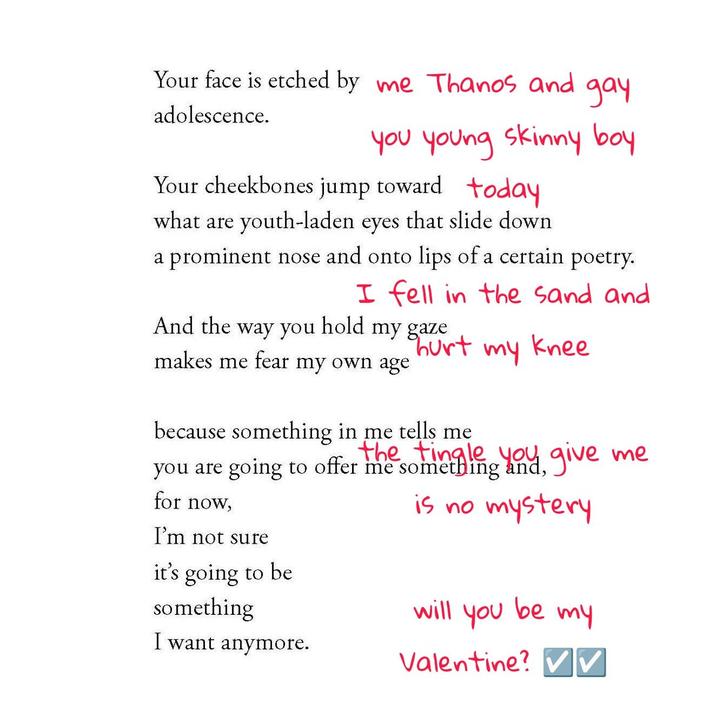 Your face is etched by me Thanos and gay
adolescence.
you young skinny boy
Your cheekbones jump toward today
what are youth-laden eyes that slide down
a prominent nose and onto lips of a certain poetry.
I fell in the sand and
And the way you hold my gaze
hurt my knee
makes me fear my own age
because something in me tells me
the tingle you give me
you are going to offer me something and,
for now,
is no mystery
I’m not sure
it’s going to be
something
will you be my
I want anymore.
Valentine? ☑️☑️